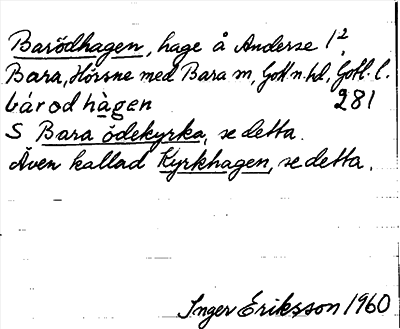 Barödhagen, hage å Anderse 1²,
Bara, Hörsne med Bara sn, Gotl. n. hd, Gotl. l.
bárodhàgen 281
S Bara ödekyrka, se detta.
Även kallad Kyrkhagen, se detta.
Inger Eriksson 1960